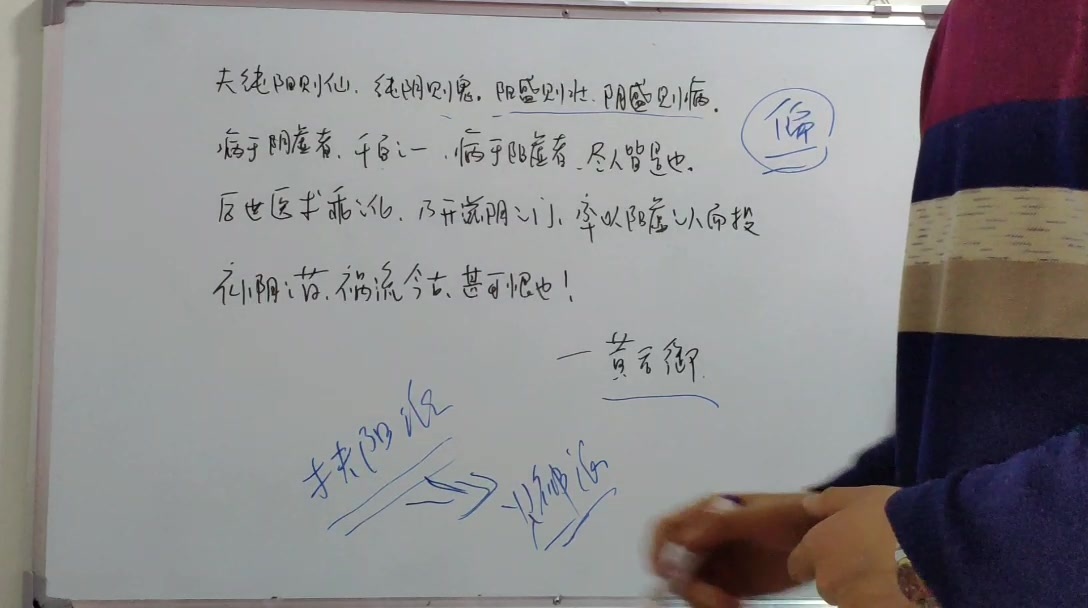 夫纯阳则仙、纯阴则鬼。阳盛则壮、阴盛则病。
病于阴虚者、千百之一、病于阳虚者、尽人皆是也。
后世医术乖讹、乃开滋阴之门、率以阳虚之人而投
补阴之药、祸流今古、甚可恨也！
一黄元御
偏
扶阳派
火神派